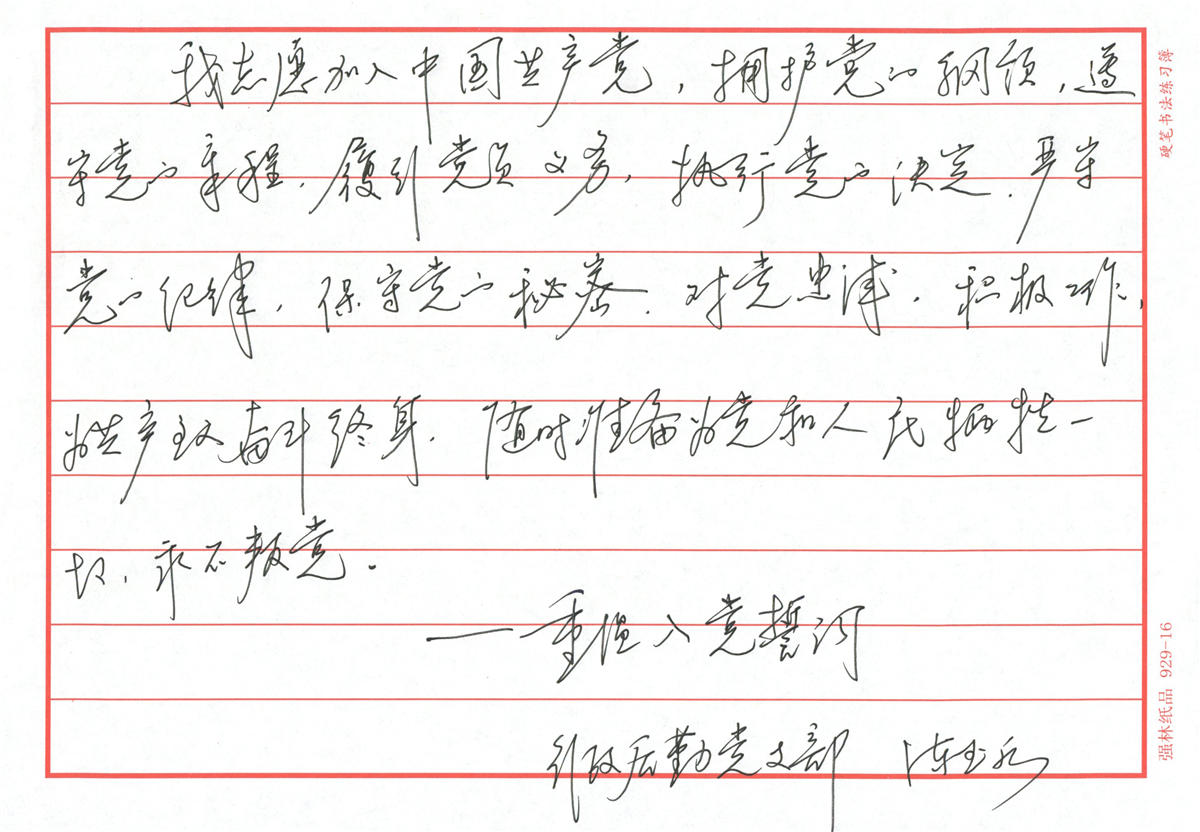 我志愿加入中国共产党，拥护党的纲领，遵
守党的章程，履行党员义务，执行党的决定，严守
党的纪律，保守党的秘密，对党忠诚，积极工作，
为共产主义奋斗终身，随时准备为党和人民牺牲一
切，永不叛党。
——重温入党誓词
行政后勤党支部 陈玉
硬笔书法练习簿
强林纸品 929-16